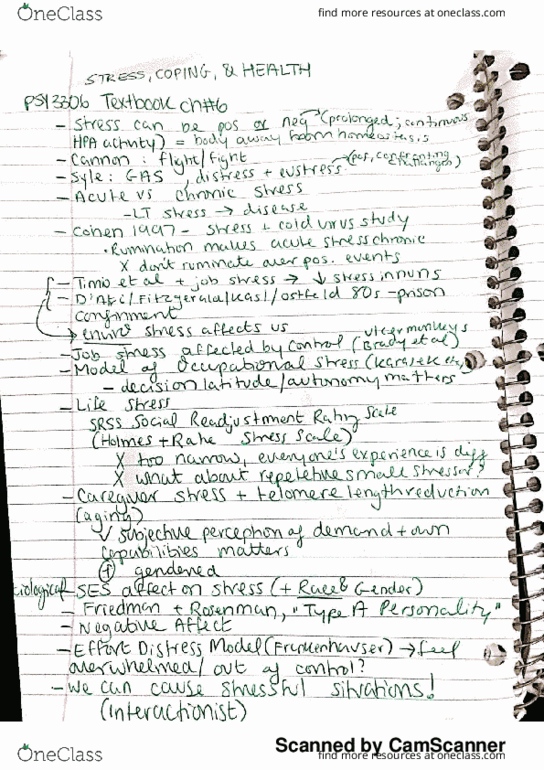 OneClass
find more resources at oneclass.com
STRESS, COPING, & HEALTH
PSY3306 Textbook ch#6
- Stress can be pos or neg (prolonged; continuous
HPA activity) = body away from homeostasis
- Cannon: flight/fight
(pos, confronting
challenges)
- Syle: GAS, distress + eustress
- Acute vs chronic stress
- LT stress → disease
- Cohen 1997 - stress + cold virus study
• Rumination makes acute stress chronic
X don't ruminate over pos. events
- Timio et al + job stress → ↓ stress in nuns
- D'Atri/Fitzgerald/Kasl/Ostfeld 80s - prison
confinment
enviro stress affects us
ulcer monkeys
- Job stress affected by control (Brady et al)
- Model of Occupational Stress (Karasek
- decision latitude/autonomy matters
- Life stress
SRSS Social Readjustment Rating Scale
(Holmes + Rahe stress scale)
X too narrow, everyone's experience is diff
X what about repetetive small stressor?
- Caregiver stress + telomere length reduction
(aging)
✓ subjective perception of demand + own
capabilities matters
+ gendered
- SES affect on stress (+ Race & Gender)
- Friedman + Rosenman, "Type A Personality"
- Negative Affect
- Effort Distress Model (Frankenhauser) → feel
overwhelmed/out of control?
- we can cause stressful situations!
(Interactionist)
Scanned by CamScanner
OneClass
find more resources at oneclass.com